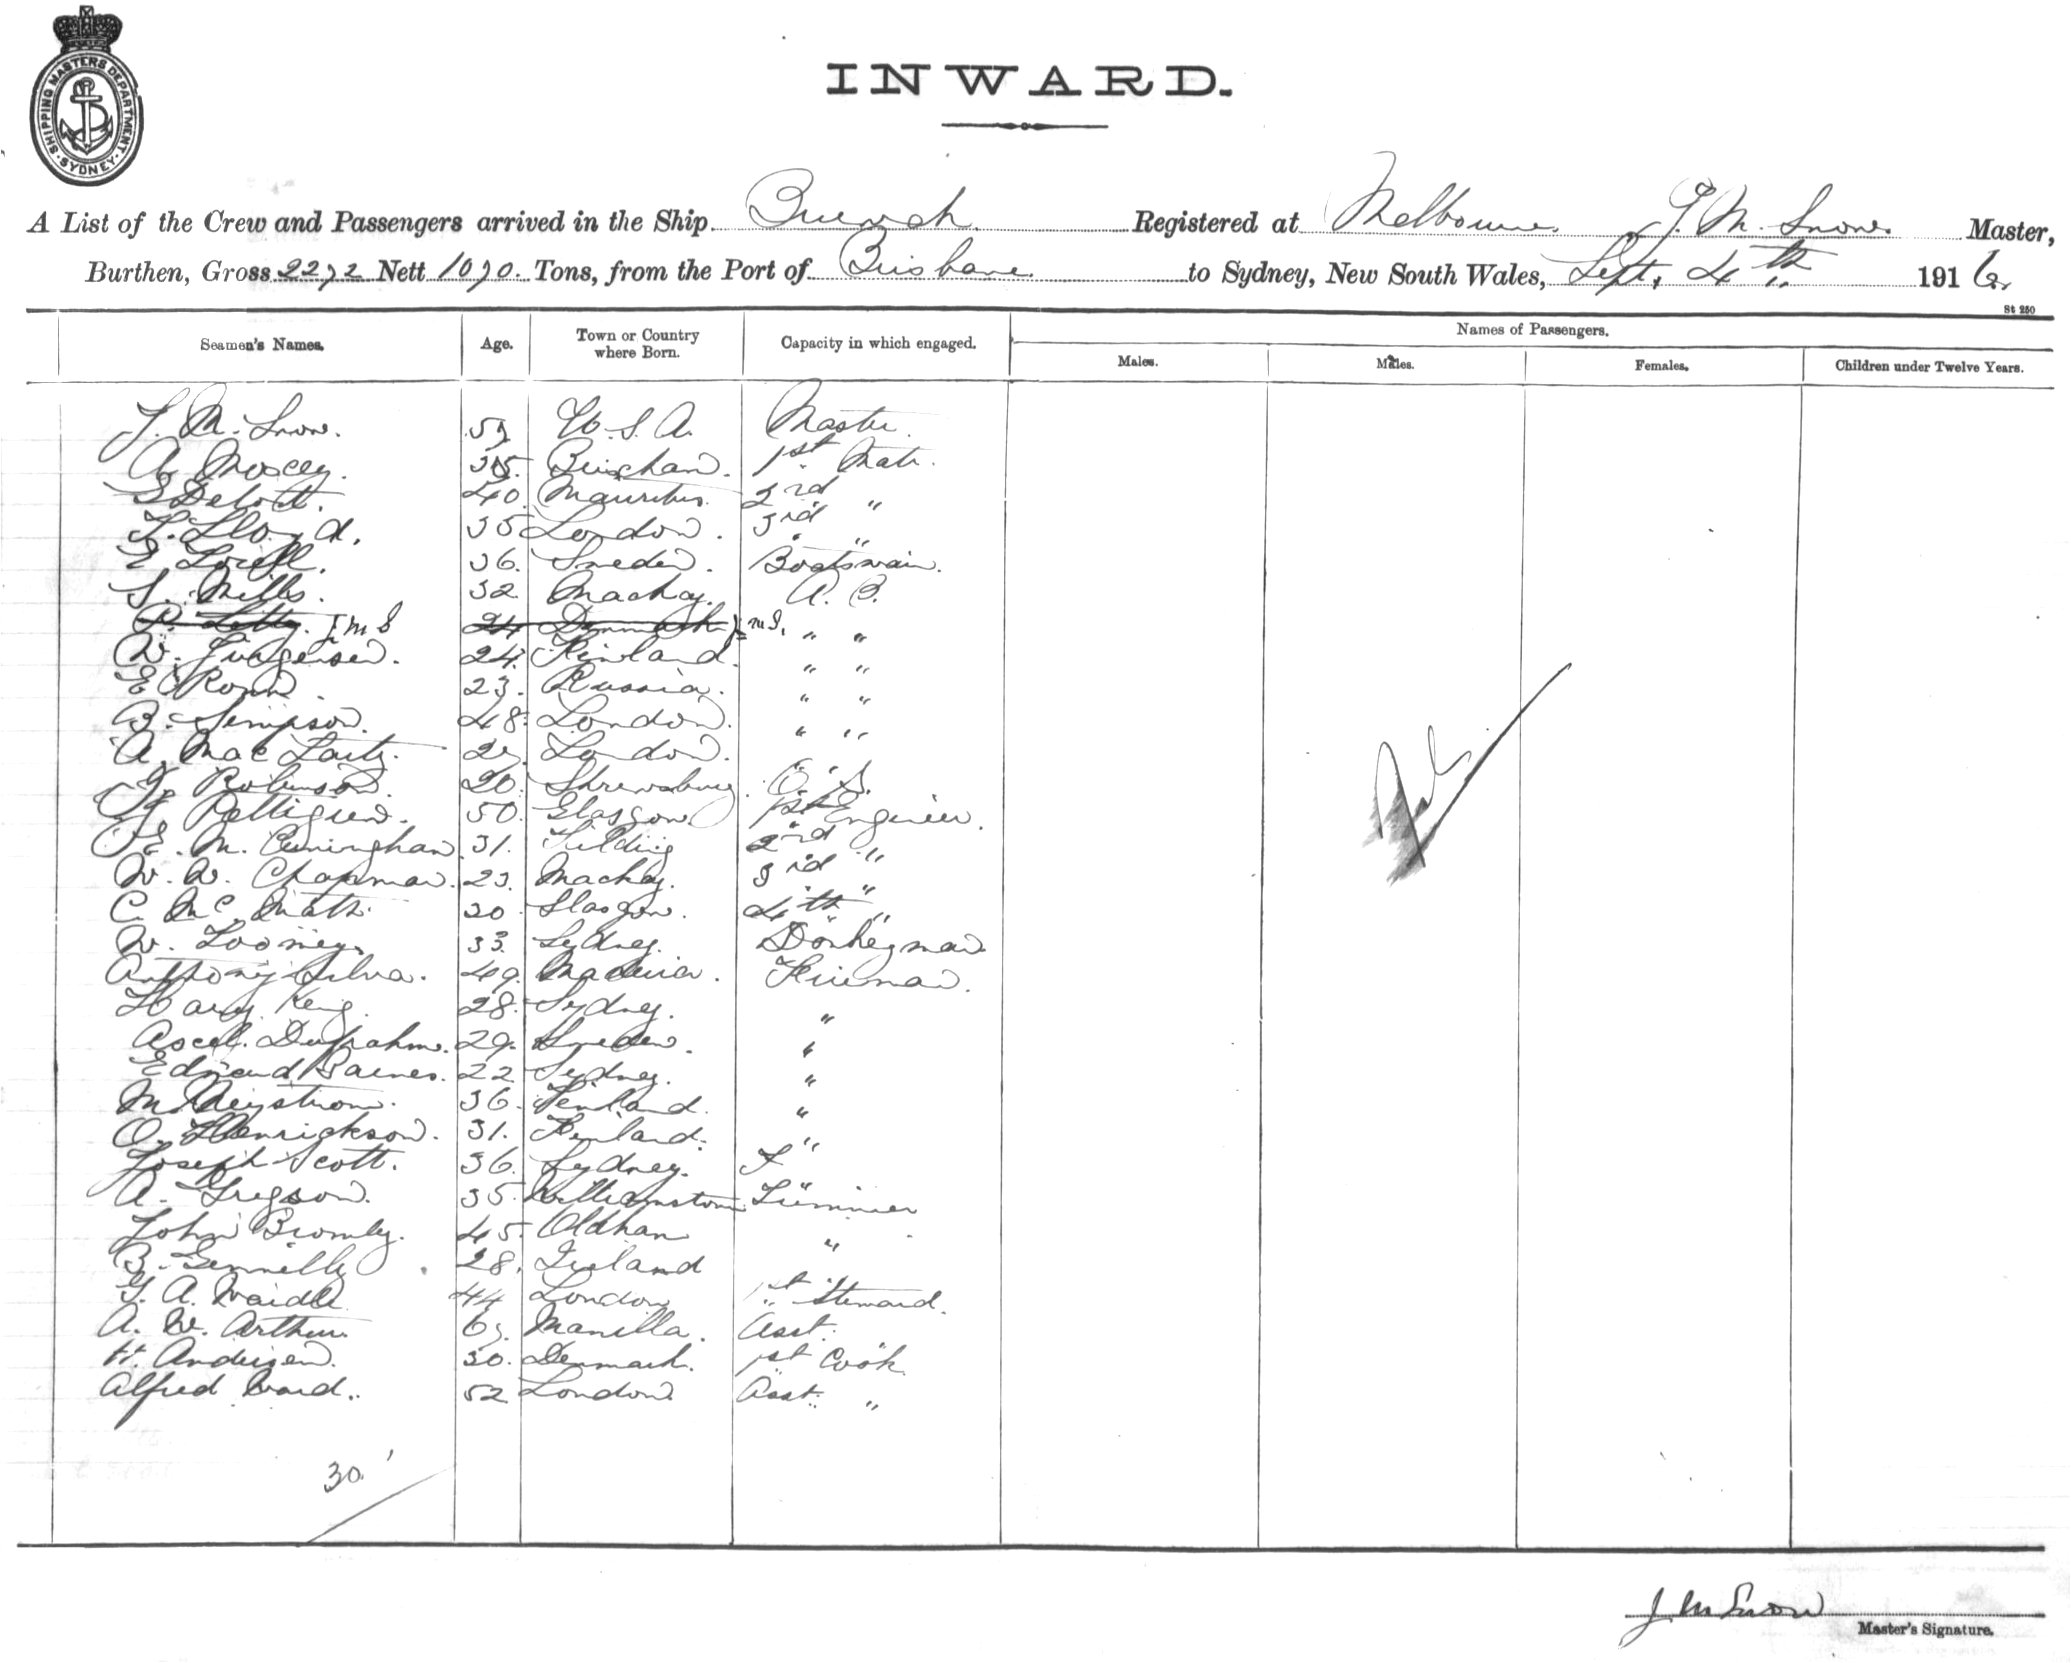 SHIPPING MASTERS DEPARTMENT · SYDNEY ·
INWARD.
A List of the Crew and Passengers arrived in the Ship Registered at Melbourne J. M. Snow Master,
Burthen, Gross 2272 Nett 1070 Tons, from the Port of Brisbane to Sydney, New South Wales, Sept. 4th 1916
St 250
Seamen's Names. Age. Town or Country where Born. Capacity in which engaged. Names of Passengers.
Males. Males. Females. Children under Twelve Years.
J. M. Snow. 57 U.S.A. Master.
A. Moxey. 35. 1st Mate.
40. Mauritius. 2nd "
L. Lloyd. 35 London. 3rd "
E. 36. Sweden. Boatswain.
S. Mills. 32. Mackay. A. B.
P. J M S 24 Denmark J M S. " "
W. Jurgensen. 24. Finland. " "
E. 23. Russia. " "
B. Simpson. 48. London. " "
A. Mac 27. London. " "
Robinson. 20. Shrewsbury. O. S.
Pettigrew. 50. Glasgow. 1st Engineer.
E. M. Cuninghan 31. Feilding 2nd "
W. W. Chapman. 23. Mackay. 3rd "
C. Mc Math. 30. Glasgow. 4th "
W. Looney. 33. Sydney. Donkeyman
Anthony Silva. 49. Madeira. Fireman.
Harry King. 28. Sydney. "
29. Sweden. "
Edmund Baines. 22 Sydney. "
M. 36. Finland. "
O. Henrickson. 31. Finland. "
Joseph Scott. 36. Sydney. F
A. Gregson. 35. Williamstown Trimmer
John Bromley. 45. Oldham "
B. 28. Ireland
G. A. 44 London 1st Steward.
A. W. Arthur. 63. Manilla. Asst.
H. Andersen. 30. Denmark. 1st Cook
Alfred Ward. 52 London. Asst. "
Nil
30
J M Snow
Master's Signature.